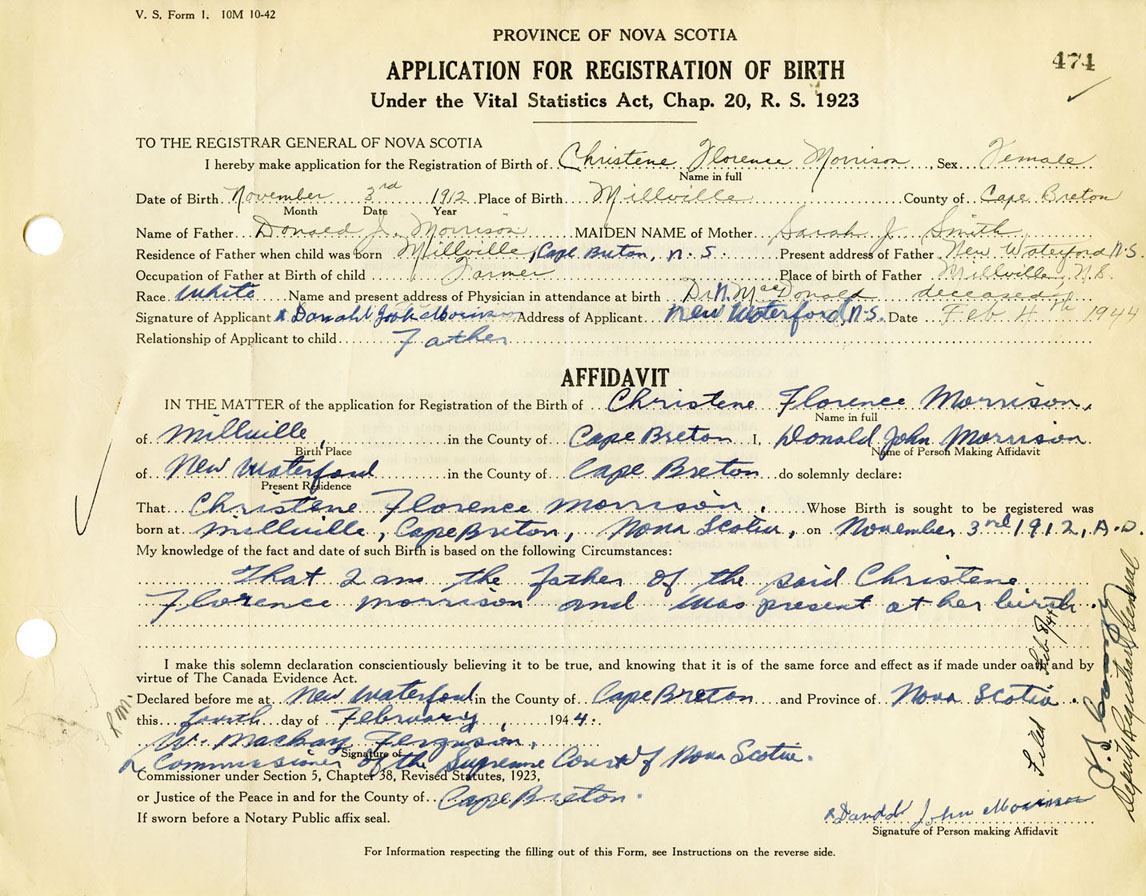 V. S. Form 1. 10M 10-42
PROVINCE OF NOVA SCOTIA
474
APPLICATION FOR REGISTRATION OF BIRTH
Under the Vital Statistics Act, Chap. 20, R. S. 1923
TO THE REGISTRAR GENERAL OF NOVA SCOTIA
I hereby make application for the Registration of Birth of Christene Florence Morrison, Sex Female
Name in full
Date of Birth November 3rd 1912 Place of Birth Millville County of Cape Breton
Month Date Year
Name of Father Donald J. Morrison MAIDEN NAME of Mother Sarah J. Smith
Residence of Father when child was born Millville, Cape Breton, N.S. Present address of Father New Waterford N.S.
Occupation of Father at Birth of child Farmer Place of birth of Father Millville, N.B.
Race White Name and present address of Physician in attendance at birth Dr. N. MacDonald deceased
Signature of Applicant Donald John Morrison Address of Applicant New Waterford, N.S. Date Feb 4th 1944
Relationship of Applicant to child Father
AFFIDAVIT
IN THE MATTER of the application for Registration of the Birth of Christene Florence Morrison,
Name in full
of Millville, in the County of Cape Breton I, Donald John Morrison
Birth Place Name of Person Making Affidavit
of New Waterford in the County of Cape Breton do solemnly declare:
Present Residence
That Christene Florence Morrison, Whose Birth is sought to be registered was
born at Millville, Cape Breton, Nova Scotia, on November 3rd 1912, A.D.
My knowledge of the fact and date of such Birth is based on the following Circumstances:
That I am the father of the said Christene
Florence Morrison and was present at her birth.
I make this solemn declaration conscientiously believing it to be true, and knowing that it is of the same force and effect as if made under oath and by
virtue of The Canada Evidence Act.
Declared before me at New Waterford in the County of Cape Breton and Province of Nova Scotia
this fourth day of February, 1944.
W. Mackay Ferguson,
Signature of
A Commissioner of the Supreme Court of Nova Scotia.
Commissioner under Section 5, Chapter 38, Revised Statutes, 1923,
or Justice of the Peace in and for the County of Cape Breton.
If sworn before a Notary Public affix seal.
Donald John Morrison
Signature of Person making Affidavit
For Information respecting the filling out of this Form, see Instructions on the reverse side.
Filed Feb 8/44
Deputy Registrar General